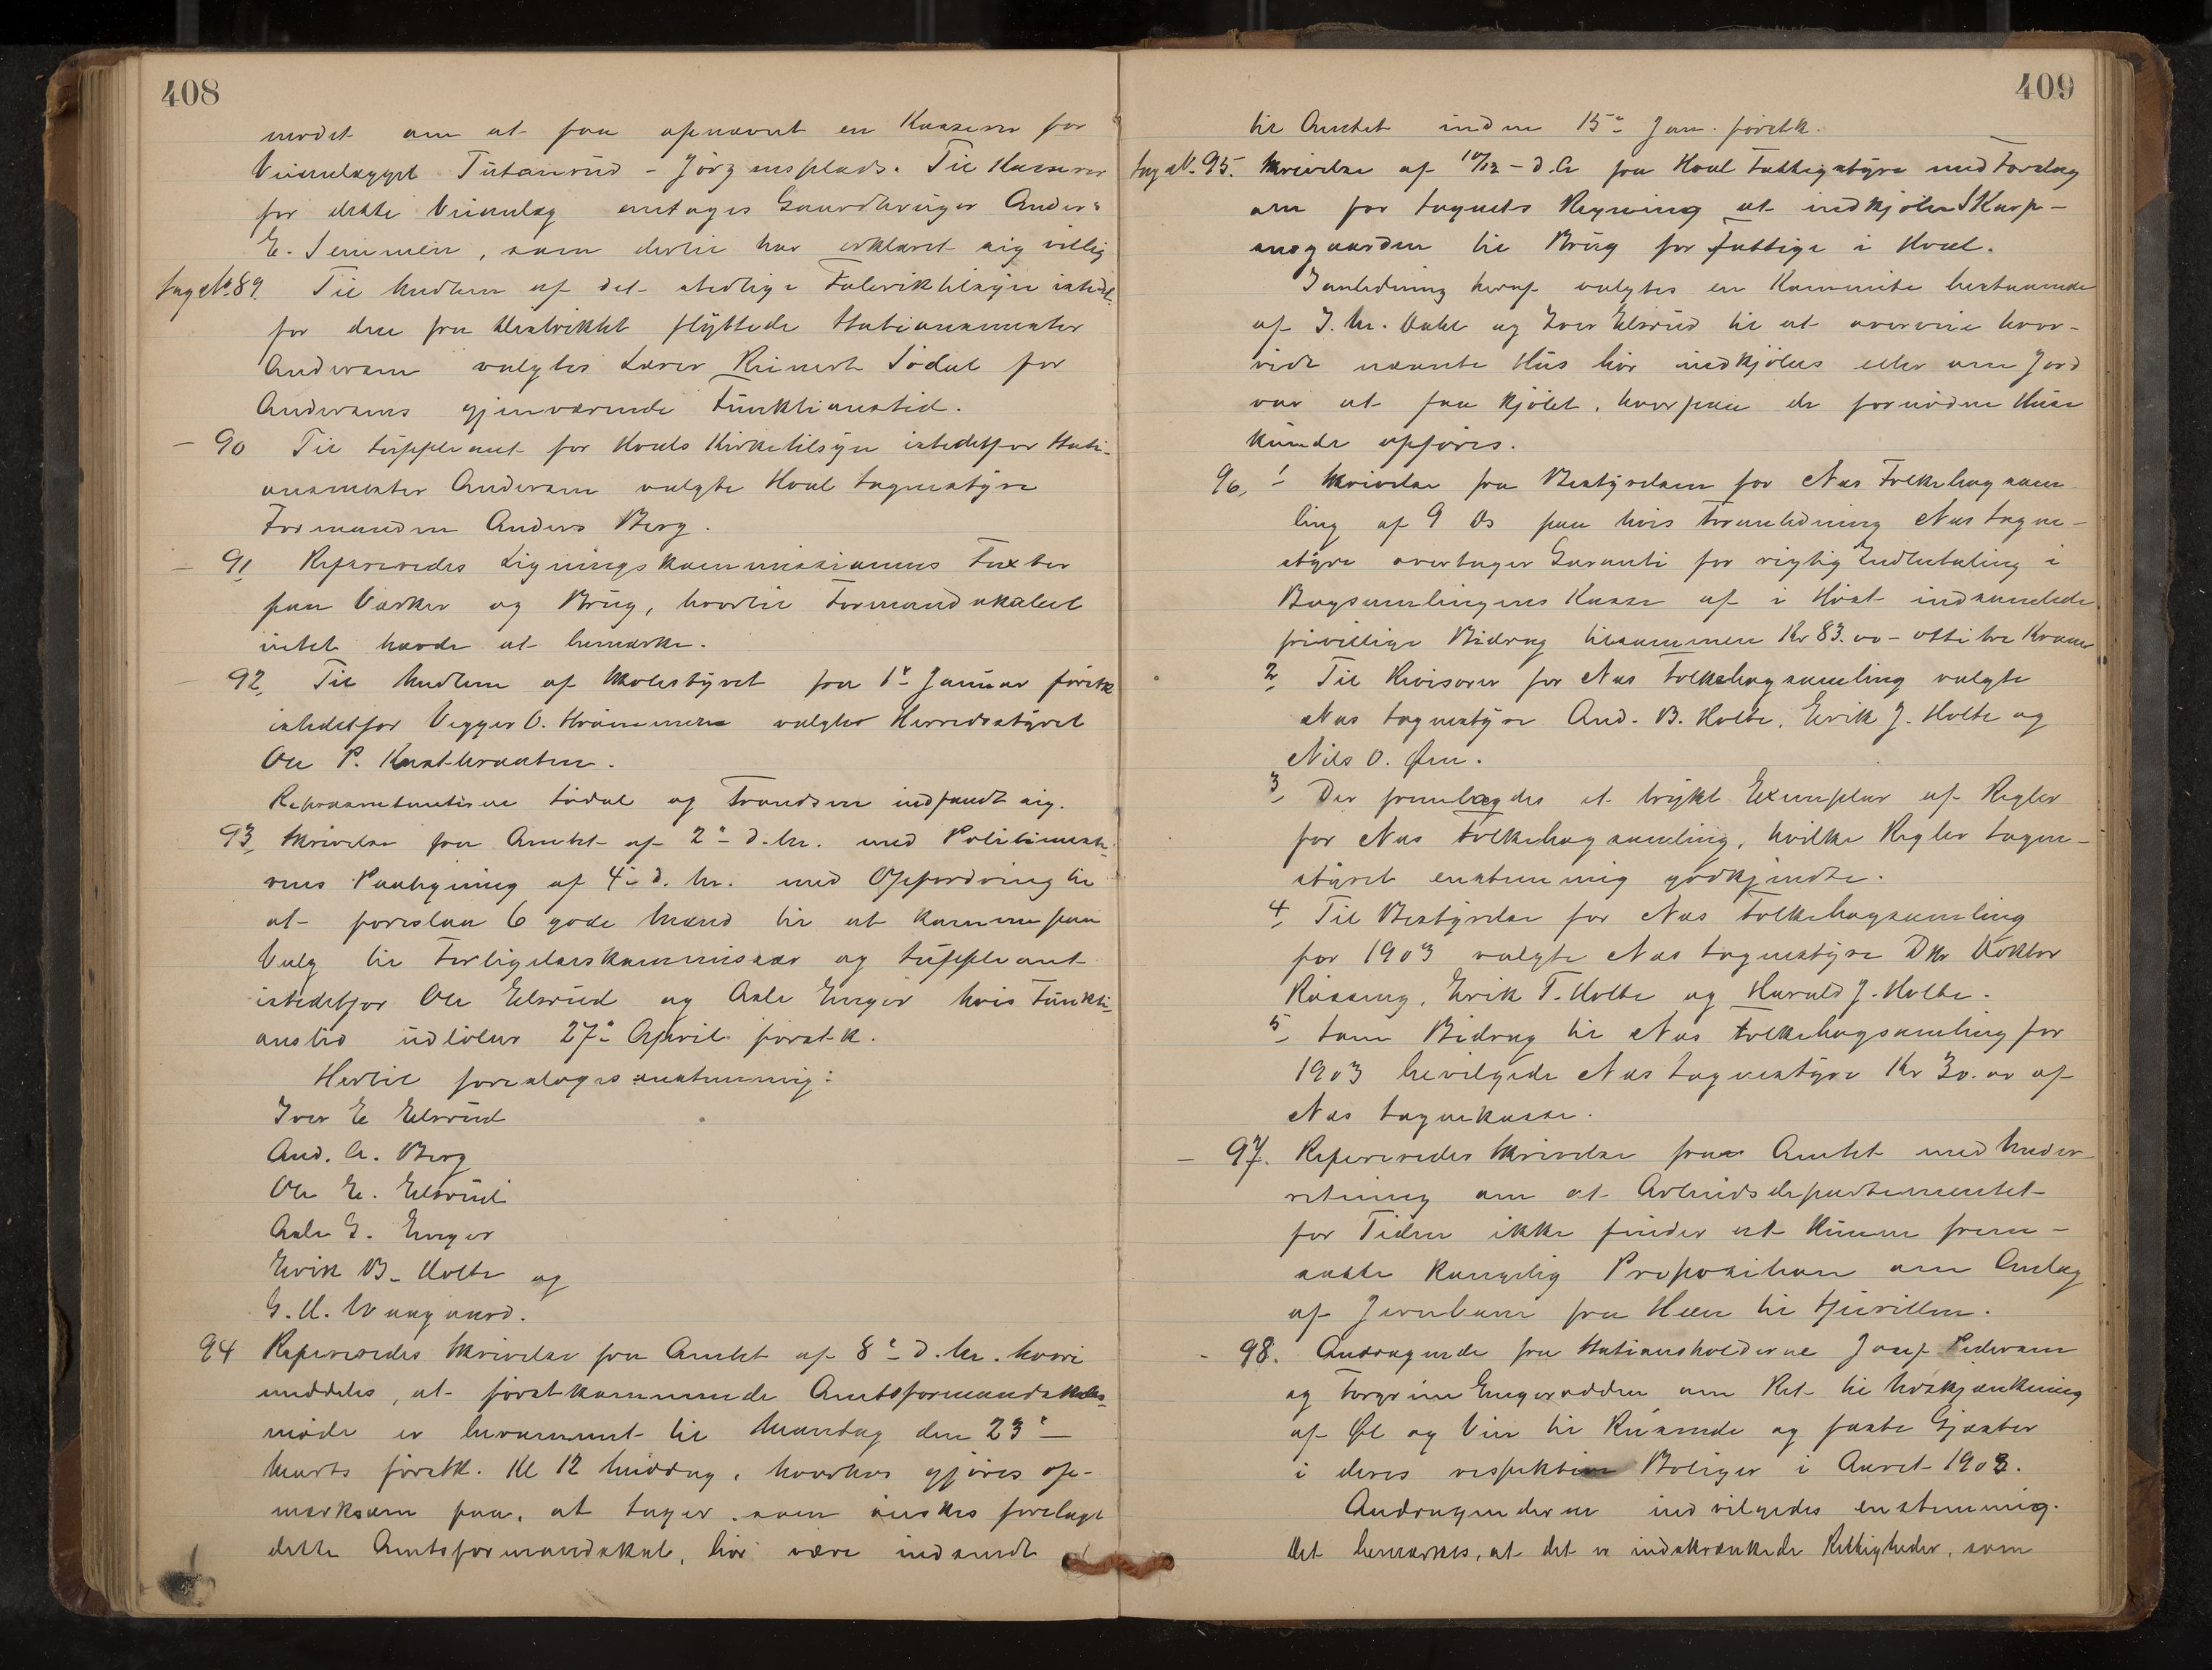 408
mødet om at faa opnævnt en Kasserer for
Veianlægget Tutanrud - Jörgensplads. Til Kasserer
for dette Veianlæg antages Gaardbruger Anders
E. Semmen, som dertil har erklæret sig villig
Sag N. 89. Til Medlem af det stedlige Fabriktilsyn istedet
for den fra Distriktet flyttede Stationsmester
Andersen valgtes Lærer Reinert Södal for
Andersens gjenværende Funktionstid.
- 90 Til Suppleant for Hols Kirketilsyn istedetfor Stati-
onsmester Andersen valgte Hol Sognestyre
Formanden Anders Berg.
- 91 Refereredes Ligningskommissionens Taxter
paa Værker og Brug, hvortil Formandskabet
intet havde at bemærke.
- 92, Til Medlem af Skolestyret fra 1ste Januar förstk
istedetfor Vegger O. valgtes Herredsstyret
Ole P.
Repræsentanterne Södal og Trondsen indfandt sig.
93, Skrivelse fra Amtet af 2den d. M. med Politimeste-
rens Paategning af 4de d. M. med Opfordring til
at foreslaa 6 gode Mænd til at komme paa
Valg til Forligelseskommissær og Suppleant
istedetfor Ole Elsrud og Asle Enger hvis Funkti-
onstid udlöber 27de April förstk.
Hertil foresloges enstemmig:
Iver E Elsrud
And. A. Berg
Ole E. Elsrud
Asle G. Enger
Erik B. Holte og
G. H. Waagaard.
94 Refereredes Skrivelse fra Amtet af 8de d. M. hvori
meddeles, at förstkommende Amtsformandskabs-
möde er berammet til Mandag den 23de
Marts förstk. Kl 12 Middag, hvorhos gjöres op-
mærksom paa, at Sager, som önskes forelagt
dette Amtsformandskab, bör være indsendt
409
til Amtet inden 15de Jan. förstk.
Sag N. 95. Skrivelse af 10/12 - d. A fra Hol Fattigstyre med Forslag
om for Sognets Regning at indkjöbe
ansgaarden til Brug for fattige i Hol.
I Anledning heraf valgtes en Kommite bestaaende
af J. M. Dahl og Iver Elsrud til at overveie hvor-
vidt nævnte Hus bör indkjöbes eller om Jord
var at faa kjöbt, hvorpaa de fornödne Huse
kunde opföres.
96, 1 Skrivelse fra Bestyrelsen for Næs Folkebogsam
ling af 9 ds paa hvis Foranledning Næs Sogne-
styre overtager Garanti for rigtig Indbetaling i
Bogsamlingens Kasse af i Höst indsamlede
frivillige Bidrag tilsammen Kr 83.00 - otti tre Kroner
2, Til Revisorer for Næs Folkebogsamling valgte
Næs Sognestyre And. B. Holte, Erik J. Holte og
Nils O. Øen.
3, Der fremlagdes et trykt Exemplar af Regler
for Næs Folkebogsamling, hvilke Regler Sogne-
styret enstemmig godkjendte.
4, Til Bestyrelse for Næs Folkebogsamling
for 1903 valgte Næs Sognestyre Dhr Doktor
Rossing, Erik T. Holte og Harald J. Holte.
5, Som Bidrag til Næs Folkebogsamling for
1903 bevilgede Næs Sognestyre Kr 30.00 af
Næs Sognekasse.
- 97. Refereredes Skrivelse fra Amtet med Under-
retning om at Arbeidsdepartementet
for Tiden ikke finder at kunne frem-
sætte kongelig Proposition om Anlæg
af Jernbane fra Heen til Sperillen.
- 98. Andragende fra Stationsholderne Josef Pedersen
og Torgrim Engerodden om Ret til Udskjænkning
af Øl og Vin til Reisende og faste Gjæster
i deres respektive Boliger i Aaret 1903.
Andragenderne indvilgedes enstemmig.
Det bemærkes, at det er indskrænkede Rettigheder, som